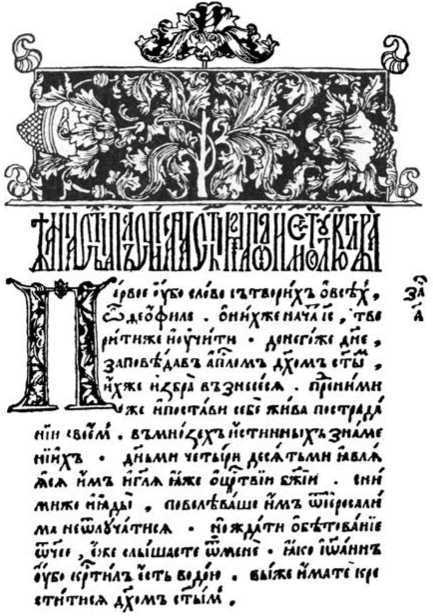 Первое ᲂу҆бо сло́во сътворихъ ѡ҆всѣ́хъ,
ѽ ѳео́филе. ѡ҆ни́хже нача́тъ і҆с҃, тво
ри́тиже и҆ᲂу҆чи́ти. донего́же дн҃е,
заповѣ́давъ а҆пⷭ҇ломъ дх҃омъ ст҃ы́мъ,
и҆́хже и҆збра̀ възнесе́сѧ. пре́дними
же и҆поста́ви себѐ жи́ва пострада́
нїи свое́мъ. въмно́зехъ и҆́стинныхъ зна́ме
нїихъ. дньмѝ четы́ридесѧтьми ꙗ҆влѧ́
ꙗсѧ и҆̀мъ и҆гл҃ѧ ꙗ҆́же ѡ҆црⷭ҇твїи бж҃їи. сни́
миже и҆ꙗды̀, повелѣва́ше и҆̀мъ ѿі҆ерⷭ҇али́
ма неѿлуча́тисѧ. ножда́ти ѡ҆бѣтова́нїе
ѿч҃ее, є҆́же слы́шасте ѿменѐ. ꙗ҆́ко і҆ѡа́ннъ
ᲂу҆́бо крⷭ҇ти́лъ є҆́сть водо́ю, вы́же и҆́мате кре
сти́тисѧ дх҃омъ ст҃ы́мъ.
за҃
а҃